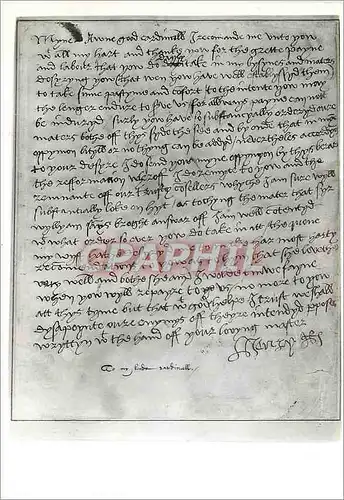 Myne Awne good cardinall I recomande me unto yow
w^t all my hart and thanke yow for the grette payne
and labour that yow do take in my bysynes and maters
desyryng yow that wen yow have well stablyssyd them
to take summe pastyme and cofort to the intente yow may
the lenger endure to serve us for allways payne can nott
be induryd surly yow have so substancyally orderyd oure
maters bothe off thys syde the see and by onde that in my
oppynion lityll or no thyng can be addyd nevertheles accordyng
to your desyre I do send yow myne oppynyon by thys berar
the refformacion wheroff I do remytte to yow and the
remnante off our trusty consellers whyche I am sure wyll
substantially loke on hyt as tochyng the mater that syr
wyllyam says broght answar off I am well contentyd
w^t what order so ever yow do take in itt the quene
my wyff hath
recom
very well and bothe she and I wolde knowe fayne
when yow wyll repayre to us no more to yow
att thys tyme but that w^t gods helpe I trust we shall
dysapoynte oure enymys off theyre intendyd purpose
wryttyn w^t the hand off your lovyng master
Henry R
To my lorde cardinall
CPARAMA